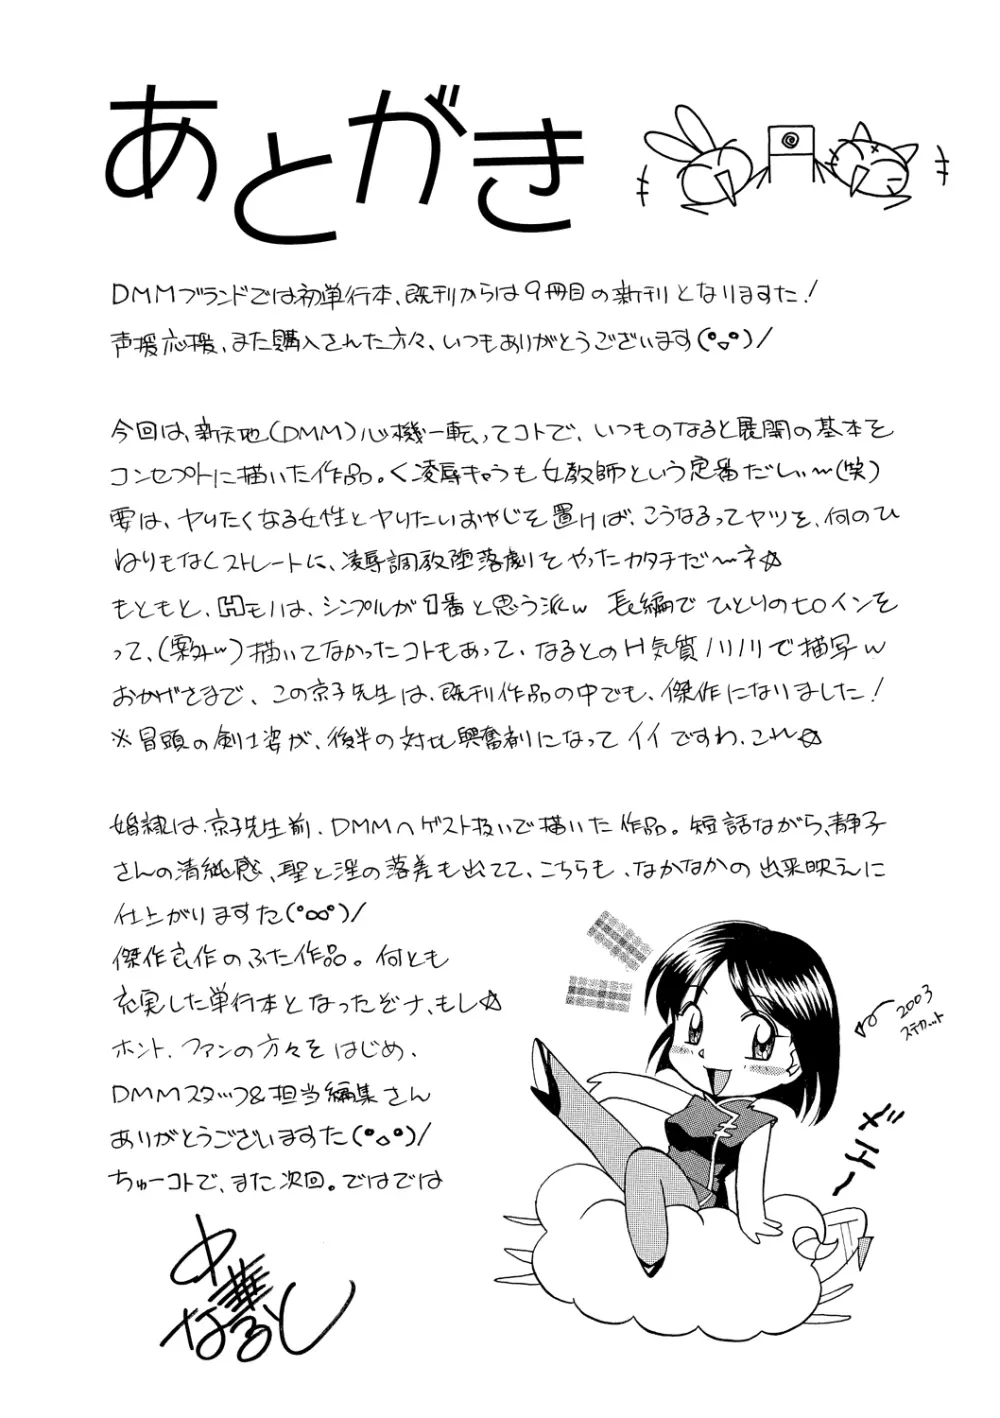 あとがき
DMMブランドでは初単行本、既刊からは9冊目の新刊となりますた！
声援応援、また購入された方々、いつもありがとうございます(°▽°)/
今回は、新天地(DMM)心機一転ってコトで、いつものなると展開の基本を
コンセプトに描いた作品。く凌辱キャラも女教師という定番だしぃ〜(笑)
要は、ヤりたくなる女性とヤりたいおやじを置けば、こうなるってヤツを、何のひ
ねりもなくストレートに、凌辱調教堕落劇をやったカタチだ〜ネ☆
もともと、Hモノは、シンプルが1番と思う派w 長編でひとりのヒロインを
って、(案外w)描いてなかったコトもあって、なるとのH気質ノリノリで描写w
おかげさまで、この京子先生は、既刊作品の中でも、傑作になりました！
※冒頭の剣士姿が、後半の対比興奮剤になってイイですわ、これ☆
婚隷は、京子先生前、DMMへゲスト扱いで描いた作品。短話ながら、静子
さんの清純感、聖と淫の落差も出てて、こちらも、なかなかの出来映えに
仕上がりますた(°∞°)/
傑作良作のふた作品。何とも
充実した単行本となったぞナ、もし☆
ホント、ファンの方々をはじめ、
DMMスタッフ&担当編集さん
ありがとうございますた(°▽°)/
ちゅーコトで、また次回。ではでは
中華なると
2003
ステカット
メエ〜